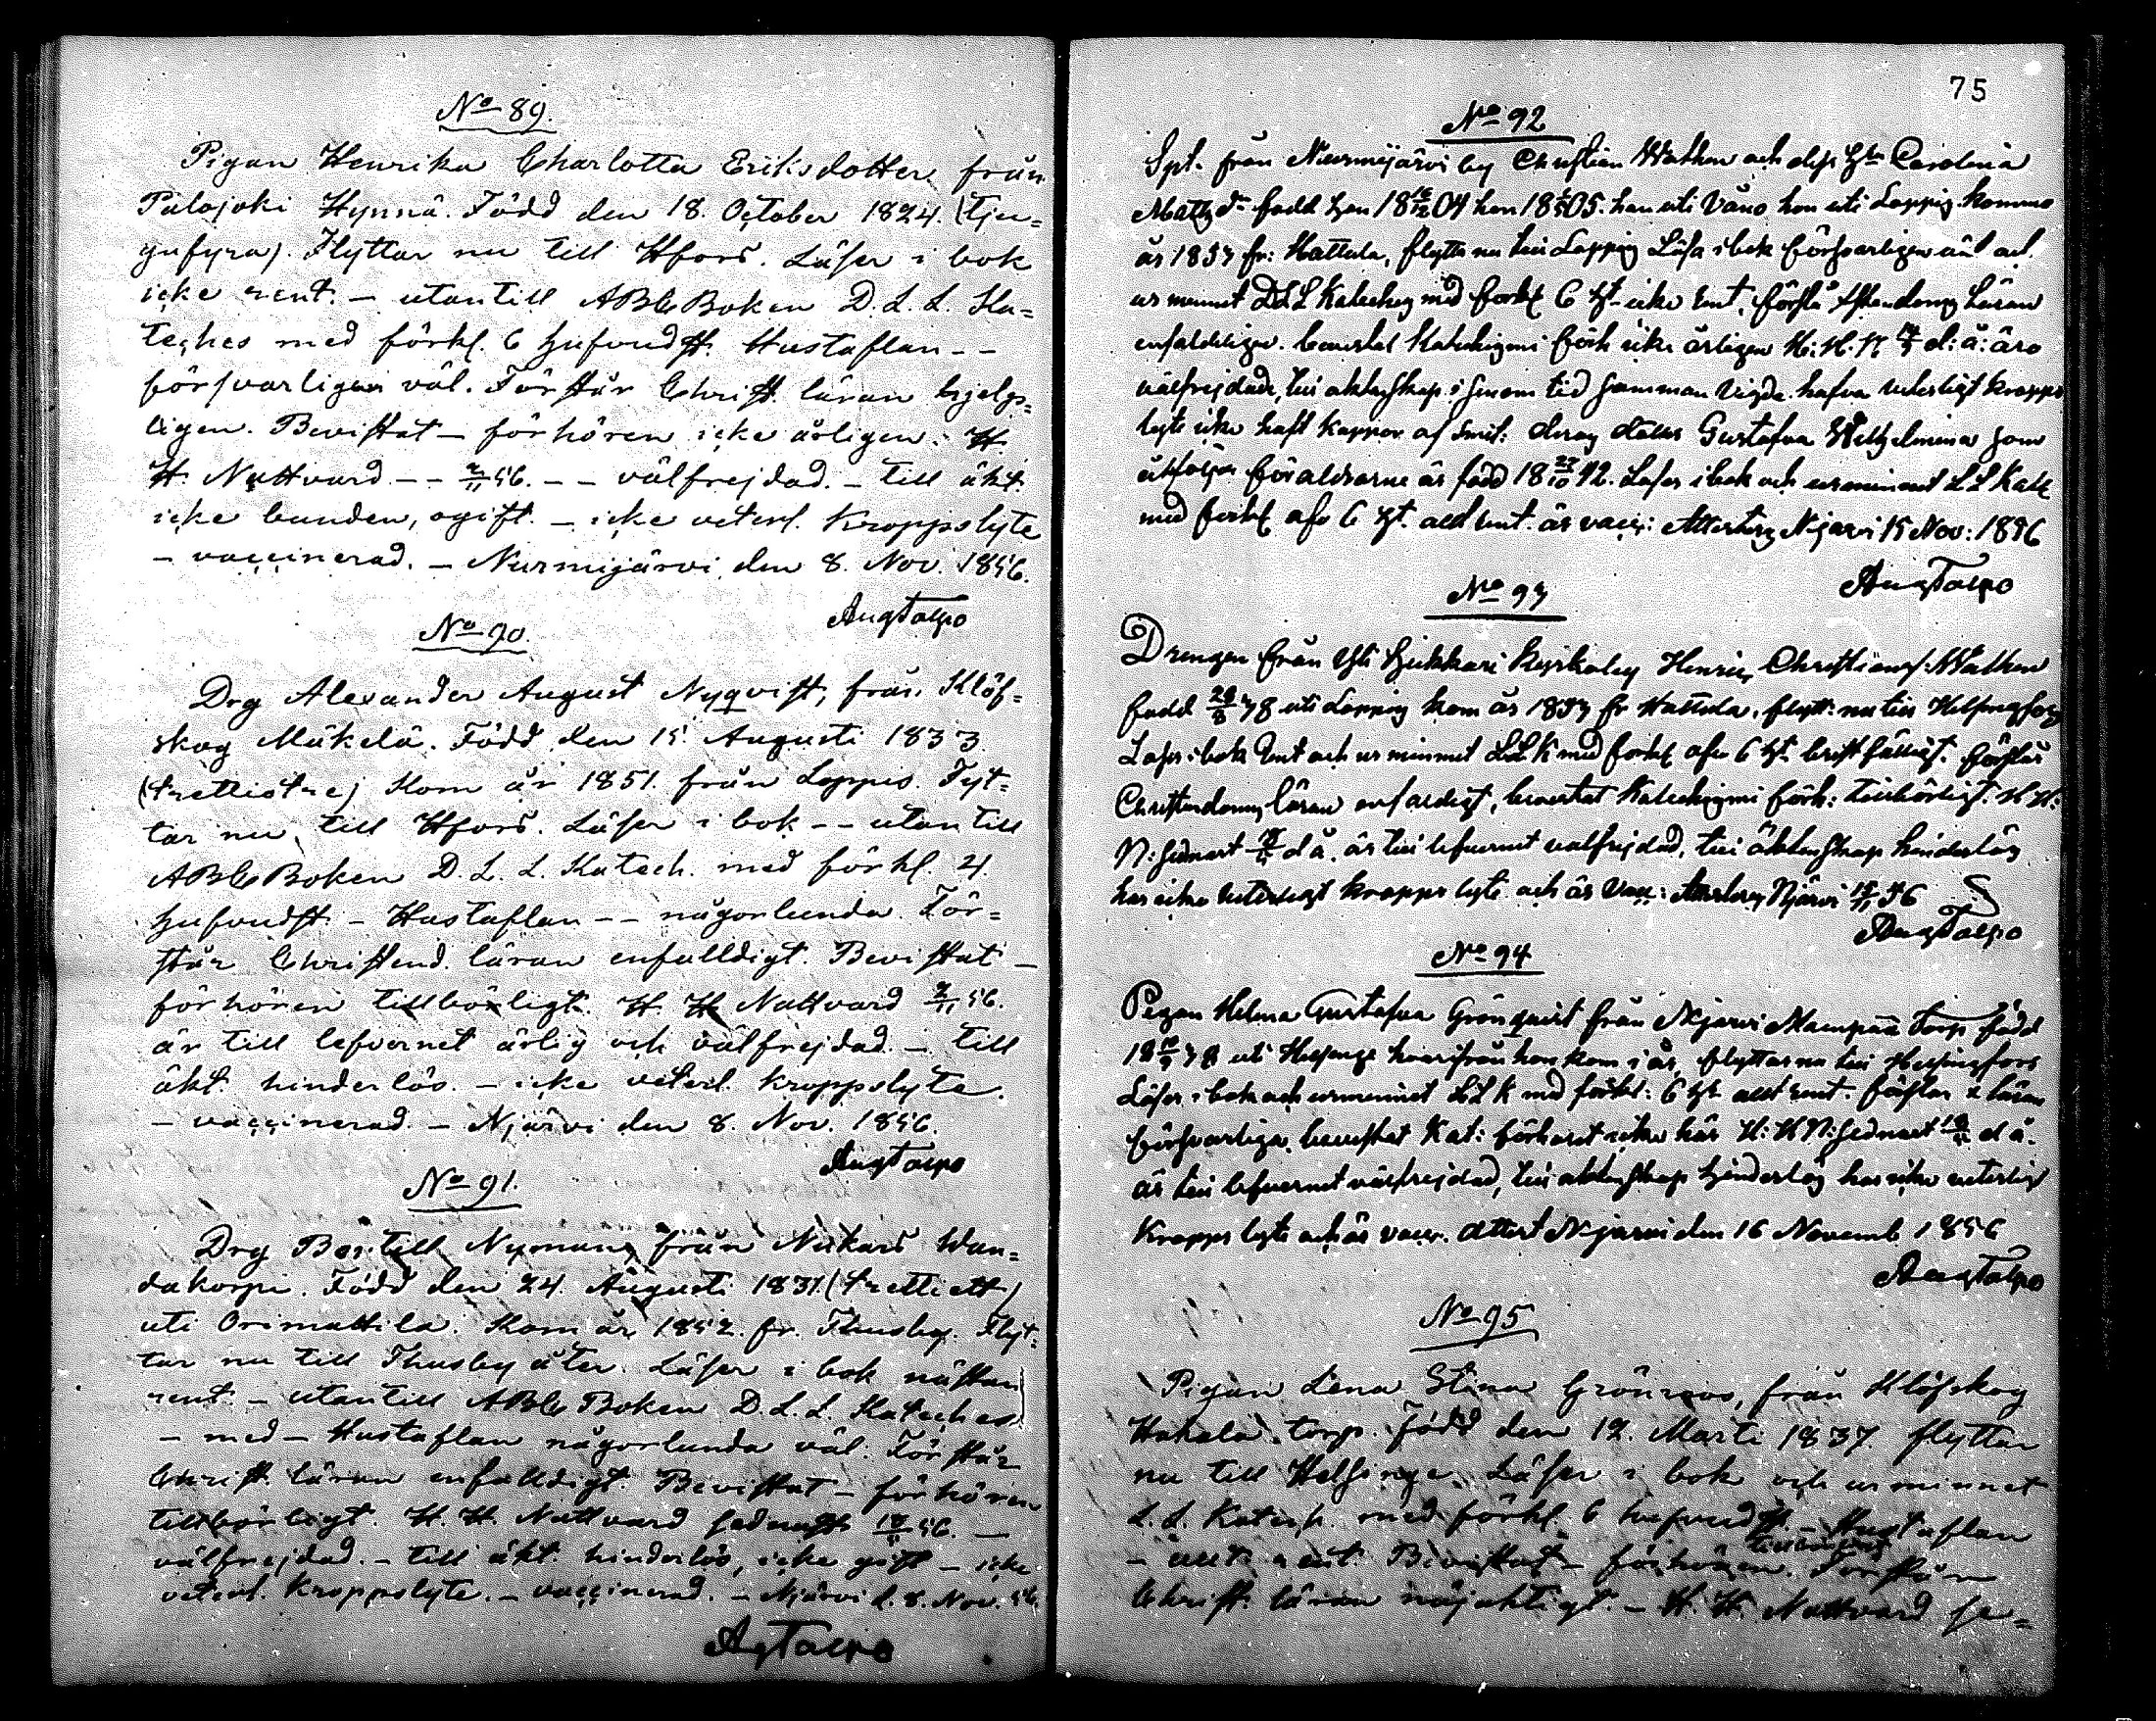 No 89.
Pigan Henrika Charlotta Eriksdotter från
Palojoki Hynnä. Född den 18. October 1824. (tju=
gufyra). Flyttar nu till Hfors. Läser i bok
icke rent. – utantill ABC Boken D. L. L. Ka=
teches med förkl. 6 hufvudst. Hustaflan – –
försvarligen väl. Förstår Christ. läran hjelp=
ligen. Bevistat – förhören icke årligen. H.
H. Nattvard – – 2/11 56. – – välfrejdad. – till äkt.
icke bunden, ogift. – icke veterl. Kroppslyte
– vaccinerad. – Nurmijärvi den 8. Nov. 1856.
Aug Talpo
No 90.
Drg Alexander August Nyqvist, från Klöf=
skog Mäkelä. Född den 15. Augusti 1833.
(trettistre) Kom år 1851. från Loppis. Flyt=
tar nu till Hfors. Läser i bok – – utantill
ABC Boken D. L. L. Katech. med förkl. 4.
hufvudst. – Hustaflan – – någorlunda. För=
står Christend. läran enfalldigt. Bevistat –
förhören tillbörligt. H. H. Nattvard 2/11 56.
är till lefvernet ärlig och välfrejdad. – till
äkt. hinderlös. – icke veterl. kroppslyte.
– vaccinerad. – Njärvi den 8. Nov. 1856.
Aug Talpo
No 91.
Drg Bertill Nyman, från Nukars Wan=
dakorpi. Född den 24. Augusti 1831. (trettiett)
uti Orimattila. Kom år 1852. fr. Thusby. Flyt=
tar nu till Thusby åter. Läser i bok nästan
rent. – utantill ABC Boken D. L. L. Kateches
– med – Hustaflan någorlunda väl. Förstår
Christ. läran enfalldigt. Bevistat – förhören
tillbörligt. H. H. Nattvard sednast 56. –
välfrejdad. – till äkt. hinderlös, icke gift – icke
veterl. Kroppslyte. – vaccinerad. – Njärvi d. 8. Nov. 56.
Ag Talpo
75
No 92
från Nurmijärvi by Christian Wathen och dess Carolina
Matts dr född han 18 04 hon 18 05. han uti Vånå hon uti Loppis. Komne
år 1853 fr: Hattula, flytta nu till Loppis Läsa i bok försvarligen väl och
ur minnet D L L Kateches med förkl 6 st. icke rent. förstå Christendoms Läran
enfaldeligen. bevistat Katechismi förh icke årligen H: H. N d: å: äro
välfrejdade, till äktenskap i sinom tid samman vigde. hafva veterligt kropps
lyte icke haft koppor af smit: deras dotter Gustafva Wilhelmina som
åtföljer föraldrarne är född 18 27/10 42. Läser i bok och ur minnet L L Kate
med förkl afv 6 st. allt rent. är vacc: Attesteras Njärvi 15 Nov: 1856
Aug Talpo
No 93
Drengen från Yli Kirkoby Henric Christians: Wathen
född 38 uti Loppis kom år 1853 fr Hattula, flytt: nu till Helsingfors
Läser i bok rent och ur minnet L L K med förkl afv 6 st. bristfälligt. förstår
Christendoms läran enfaldigt, bevistat Katechismi förh: tillbörligt. H H:
N: sednast d å. är till lefvernet välfrejdad, till äktenskap hinderlös
har icke veterligt kropps lyte och är Vacc: Attesteras Njärvi 15/11 56
Aug Talpo
No 94
Pigan Helena Gustafva Grönqvist från Njärvi Torp född
18 38 uti Helsinge hvarifrån hon kom i år, flyttar nu till Helsingfors
Läser i bok och ur minnet L L K med förkl: 6 st allt rent. förstår X läran
försvarligen bevistat Kat: förhöret icke här H: H N: sednast d å.
är till lefvernet välfrejdad, till äktenskap hinderlös har icke veterligt
Kropps lyte och är vacc. Attest Njärvi den 16 Novemb 1856
Aug Talpo
No 95
Pigan Lena Stina Grönroos, från Klöfskog
Hakala torp. Född den 12. Marti 1837. flyttar
nu till Helsinge. Läser i bok och ur minnet
L. L. Katech. med förkl. 6 hufvudst. – Hustaflan
– allt rent. Bevistat – förhören tillbörligt. Förstår
Christ. läran nöjaktigt. – H. H. Nattvard se=